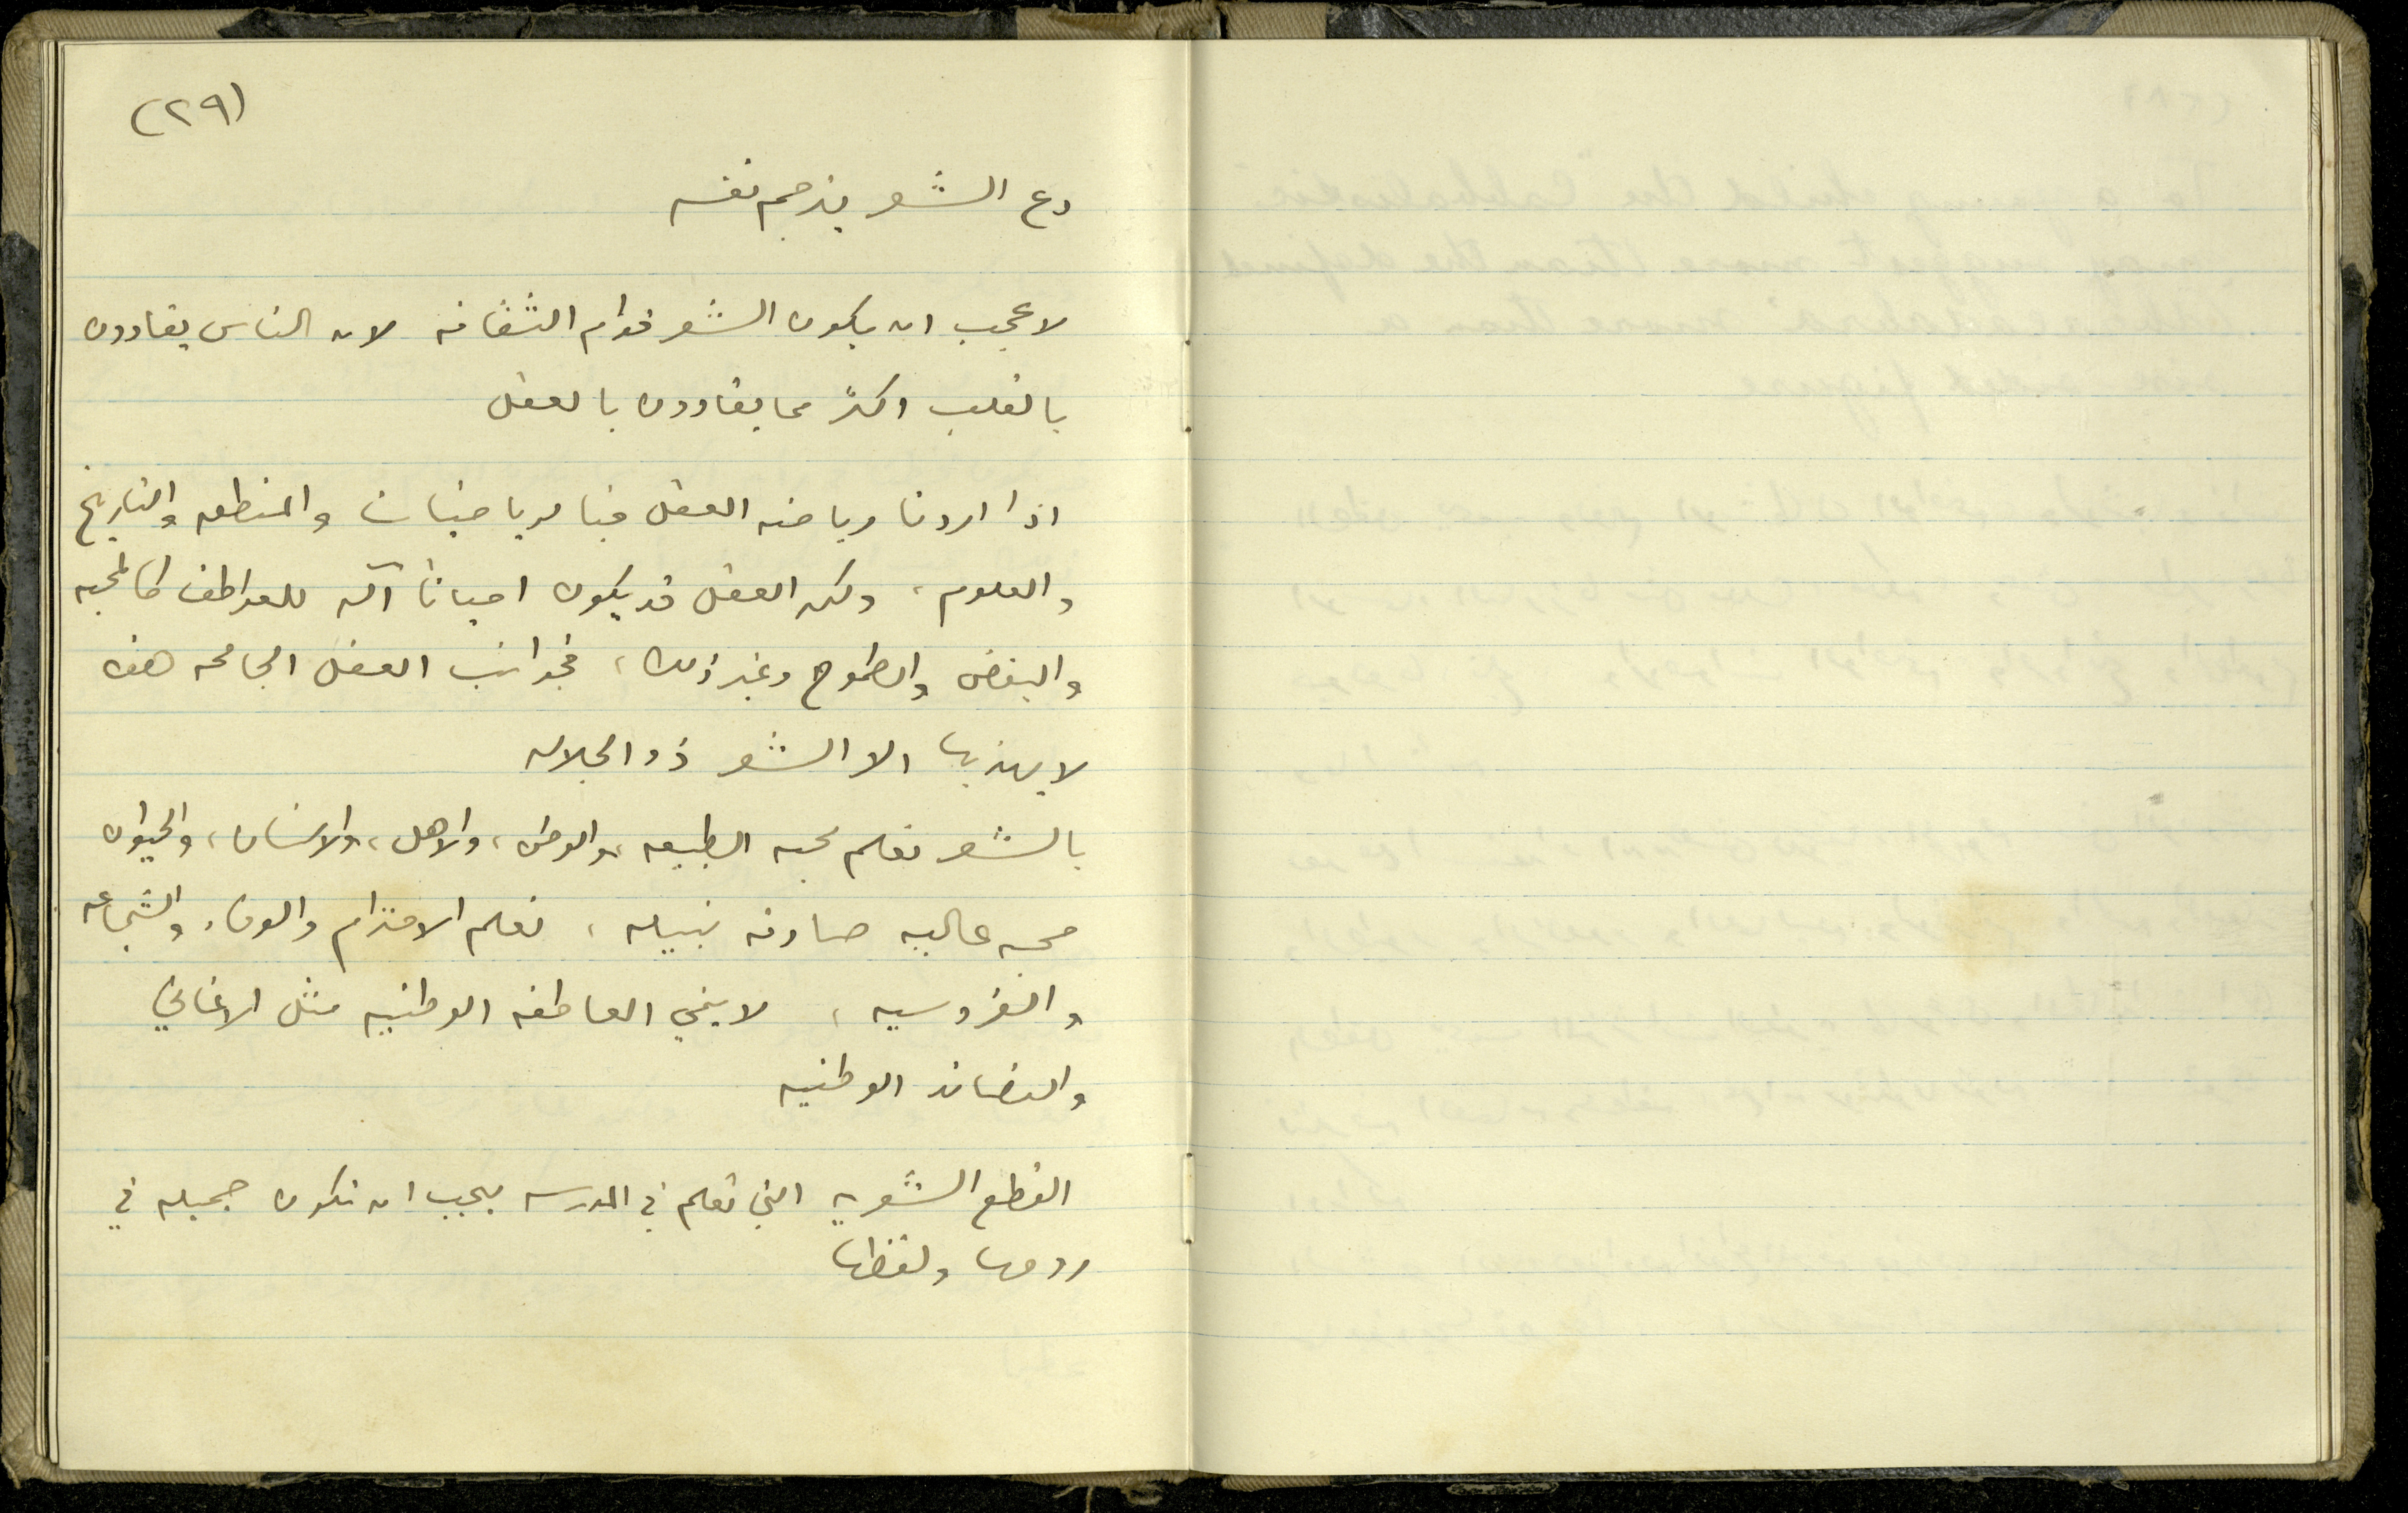 (٢٩)
دع الشعر يترجم نفسه
لا عجب ان يكون الشعر قوام الثقافه لان الناس يقادون
بالقلب اكثر مما يقادون بالعقل
اذا اردنا رياضه العقل فبالرياضيات والمنطق والتاريخ
والعلوم، ولكن العقل قد يكون احياناً آله للعواطف كالمحبه
والبغض والطموح وغير ذلك، فجوانب العقل الجامحه هذه
لا يهذبها الا الشعر ذو الجلاله
بالشعر نعلم محبه الطبيعه، والوطن، والاهل، والانسان، والحيوان
محبه عاليه صادقه نبيله، نعلم الاحترام والوفاء والشجاعه
والفروسيه، لا ينمي العاطفه الوطنيه مثل الاغاني
والقصائد الوطنيه
القطع الشعريه التي تعلم في المدرسه يجب ان تكون جميله في
روحها ولفظها